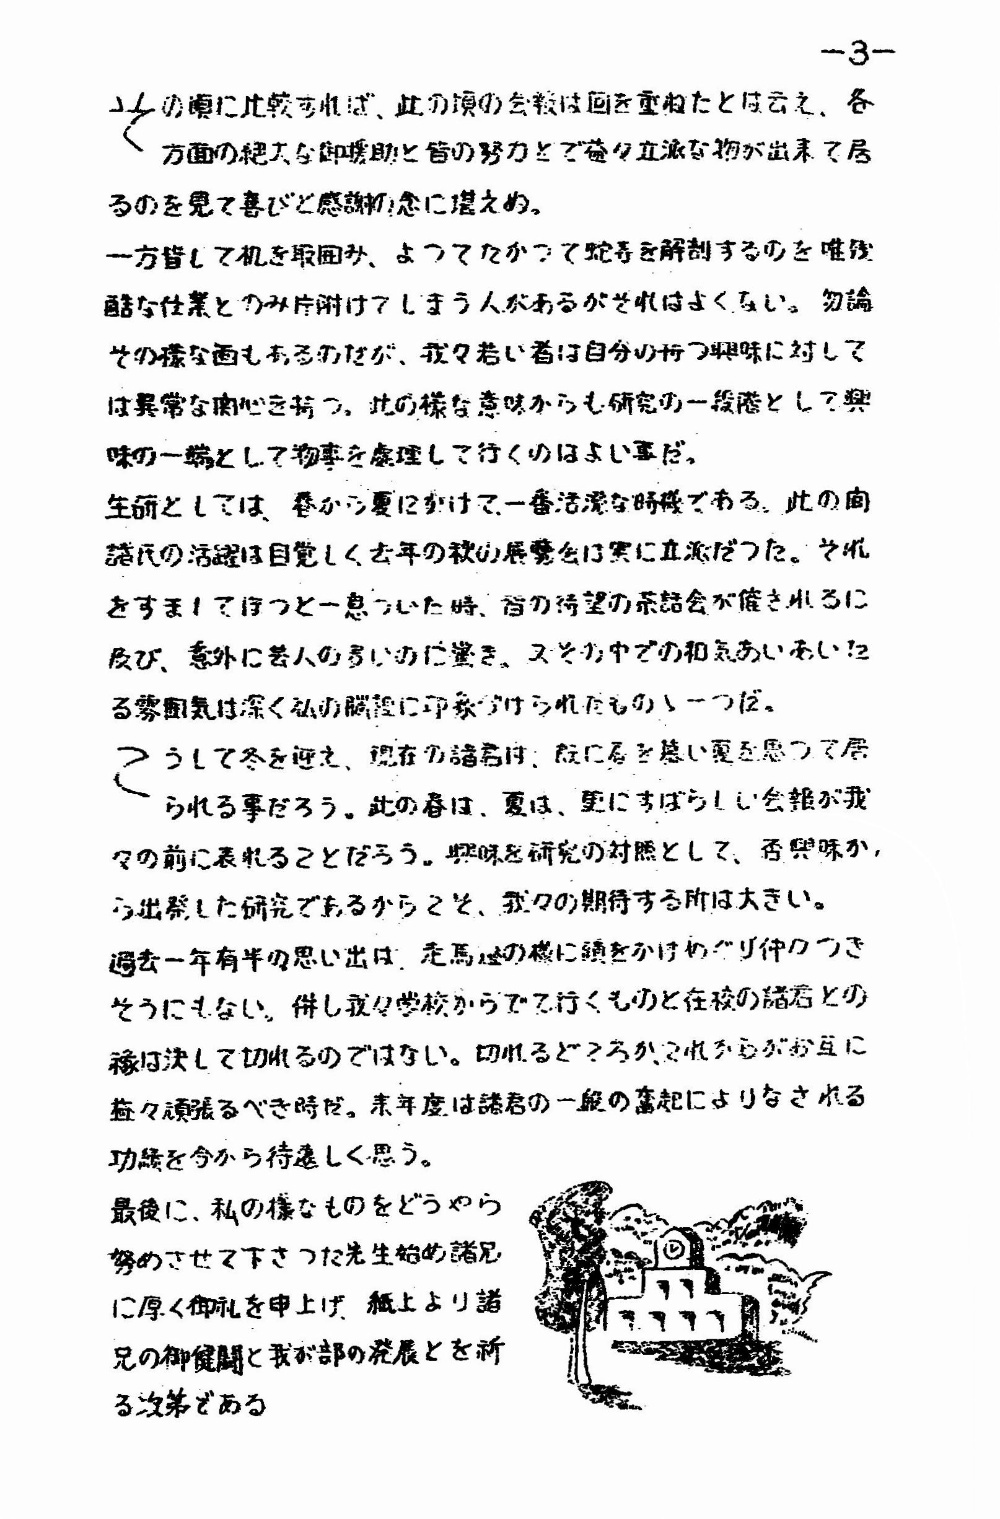 －3－
その頃に比較すれば、此の頃の会報は回を重ねたとは云え、各
方面の絶大な御援助と皆の努力とで益々立派な物が出来て居
るのを見て喜びと感謝の念に堪えぬ。
一方皆して机を取囲み、よつてたかつて蛇等を解剖するのを唯残
酷な仕業とのみ片附けてしまう人があるがそれはよくない。勿論
その様な面もあるのだが、我々若い者は自分の持つ興味に対して
は異常な関心を持つ。此の様な意味からも研究の一段階として興
味の一端として物事を処理して行くのはよい事だ。
生研としては、春から夏にかけて、一番活潑な時機である。此の間
諸氏の活躍は目覚しく去年の秋の展覧会は実に立派だつた。それ
をすましてほつと一息ついた時、皆の待望の茶話会が催されるに
及び、意外に芸人の多いのに驚き、又その中での和気あいあいた
る雰囲気は深く私の脳裡に印象づけられたものゝ一つだ。
こうして冬を迎え、現在の諸君は、既に春を慕い夏を思つて居
られる事だろう。此の春は、夏は、更にすばらしい会報が我
々の前に表れることだろう。興味を研究の対照として、否興味か
ら出発した研究であるからこそ、我々の期待する所は大きい。
過去一年有半の思い出は、走馬燈の様に頭をかけめぐり仲々つき
そうにもない。併し我々学校からでて行くものと在校の諸君との
縁は決して切れるのではない。切れるどころか、これからがお互に
益々頑張るべき時だ。来年度は諸君の一般の奮起によりなされる
功績を今から待遠しく思う。
最後に、私の様なものをどうやら
努めさせて下さつた先生始め諸兄
に厚く御礼を申上げ、紙上より諸
兄の御健闘と我が部の発展とを祈
る次第である